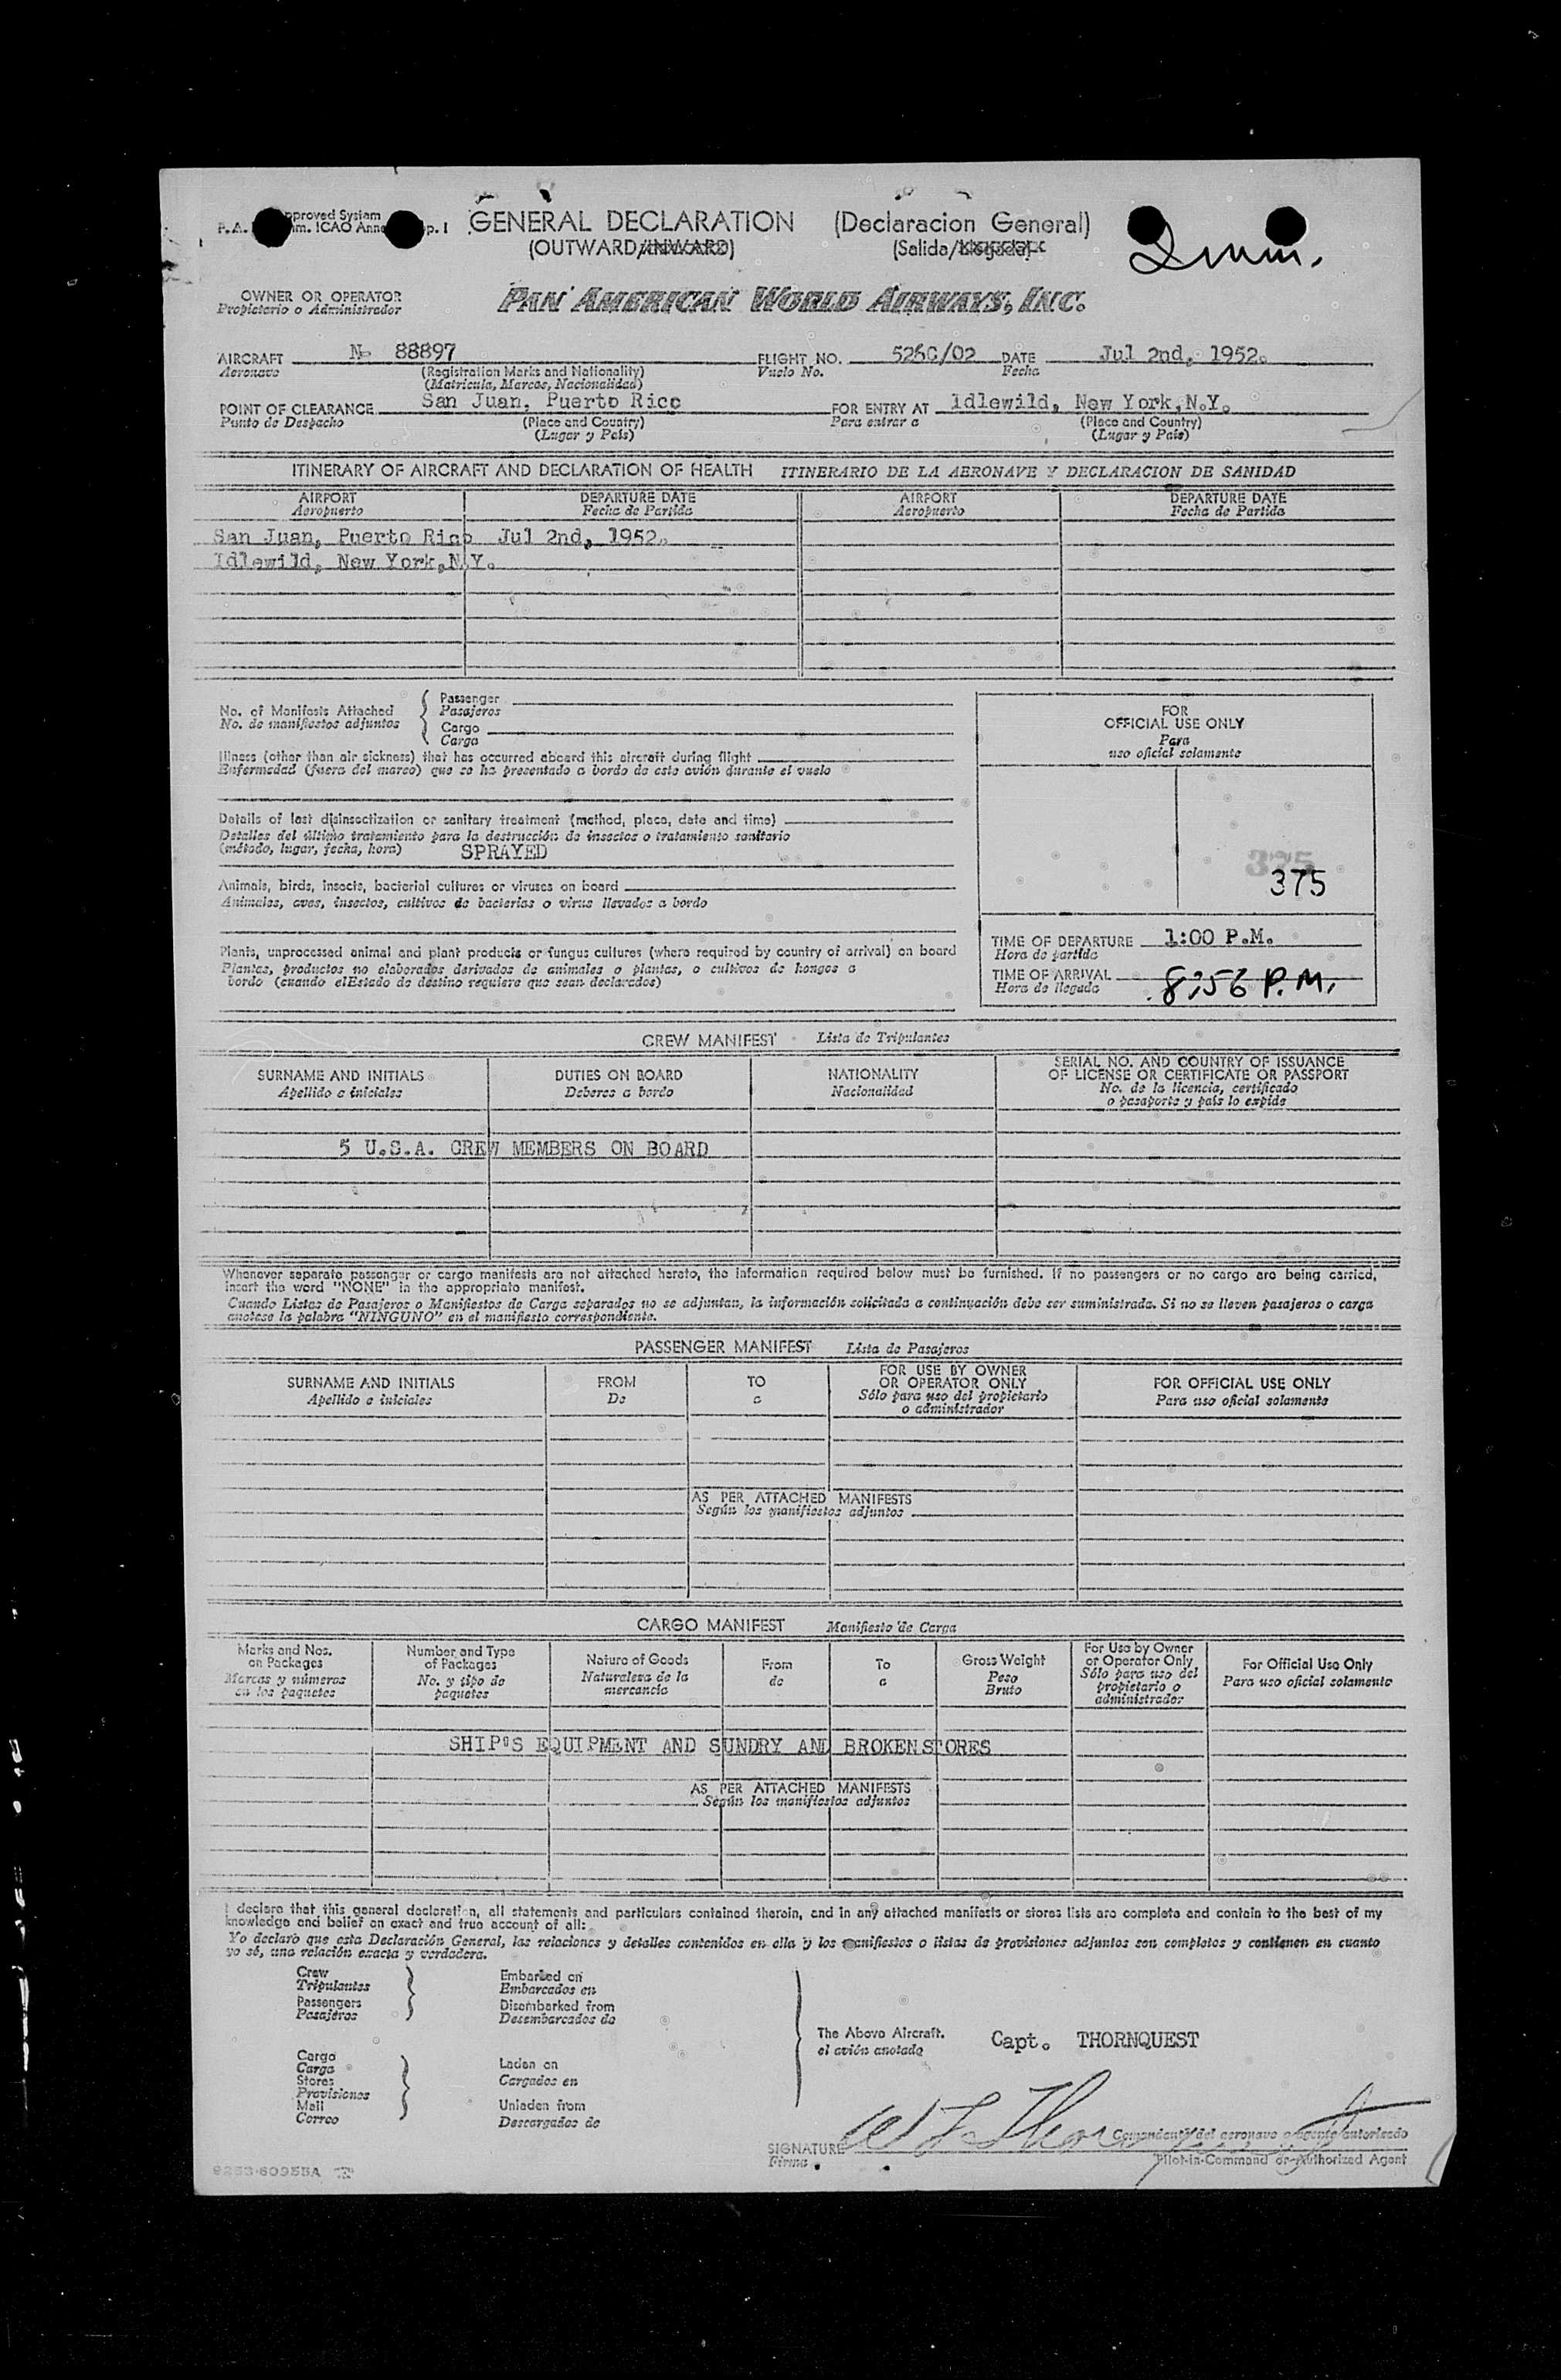 GENERAL DECLARATION (Declaracion General)
(OUTWARD/INWARD) (Salida/
P.A. pproved System
m. ICAO Anne p. I
OWNER OR OPERATOR
Propietario o Administrador
PAN AMERICAN WORLD AIRWAYS, INC.
AIRCRAFT N- 88897 FLIGHT NO. 526C/02 DATE Jul 2nd, 1952.
Aeronave (Registration Marks and Nationality) Vuelo No. Fecha
(Matricula, Marcas, Nacionalidad)
POINT OF CLEARANCE San Juan, Puerto Rico FOR ENTRY AT Idlewild, New York,N.Y.
Punto de Despacho (Place and Country) Para entrar a (Place and Country)
(Lugar y País) (Lugar y País)
ITINERARY OF AIRCRAFT AND DECLARATION OF HEALTH ITINERARIO DE LA AERONAVE Y DECLARACION DE SANIDAD
AIRPORT DEPARTURE DATE AIRPORT DEPARTURE DATE
Aeropuerto Fecha de Partida Aeropuerto Fecha de Partida
San Juan, Puerto Rico Jul 2nd, 1952.
Idlewild, New York,N.Y.
No. of Manifests Attached
No. de manifiestos adjuntos
Passenger
Pasajeros
Cargo
Carga
Illness (other than air sickness) that has occurred aboard this aircraft during flight
Enfermedad (fuera del mareo) que se ha presentado a bordo de este avión durante el vuelo
Details of last disinsectization or sanitary treatment (method, place, date and time)
Detalles del último tratamiento para la destrucción de insectos o tratamiento sanitario
(método, lugar, fecha, hora) SPRAYED
Animals, birds, insects, bacterial cultures or viruses on board
Animales, aves, insectos, cultivos de bacterias o virus llevados a bordo
Plants, unprocessed animal and plant products or fungus cultures (where required by country of arrival) on board
Plantas, productos no elaborados derivados de animales o plantas, o cultivos de hongos a
bordo (cuando elEstado de destino requiere que sean declarados)
FOR
OFFICIAL USE ONLY
Para
uso oficial solamente
375
375
TIME OF DEPARTURE 1:00 P.M.
Hora de partida
TIME OF ARRIVAL 8:56 P.M.
Hora de llegada
CREW MANIFEST Lista de Tripulantes
SURNAME AND INITIALS DUTIES ON BOARD NATIONALITY SERIAL NO. AND COUNTRY OF ISSUANCE
OF LICENSE OR CERTIFICATE OR PASSPORT
Apellido e iniciales Deberes a bordo Nacionalidad No. de la licencia, certificado
o pasaporte y país lo expide
5 U.S.A. CREW MEMBERS ON BOARD
Whenever separate passenger or cargo manifests are not attached hereto, the information required below must be furnished. If no passengers or no cargo are being carried,
insert the word "NONE" in the appropriate manifest.
Cuando Listas de Pasajeros o Manifiestos de Carga separados no se adjuntan, la información solicitada a continuación debe ser suministrada. Si no se lleven pasajeros o carga
anotese la palabra "NINGUNO" en el manifiesto correspondiente.
PASSENGER MANIFEST Lista de Pasajeros
SURNAME AND INITIALS FROM TO FOR USE BY OWNER
OR OPERATOR ONLY FOR OFFICIAL USE ONLY
Apellido e iniciales De a Sólo para uso del propietario
o administrador Para uso oficial solamente
AS PER ATTACHED MANIFESTS
Según los manifiestos adjuntos
CARGO MANIFEST Manifiesto de Carga
Marks and Nos.
on Packages
Marcas y números
en los paquetes
Number and Type
of Packages
No. y tipo de
paquetes
Nature of Goods
Naturaleza de la
mercancia
From
de
To
a
Gross Weight
Peso
Bruto
For Use by Owner
or Operator Only
Sólo para uso del
propietario o
administrador
For Official Use Only
Para uso oficial solamente
SHIP'S EQUIPMENT AND SUNDRY AND BROKEN STORES
AS PER ATTACHED MANIFESTS
Según los manifiestos adjuntos
I declare that this general declaration, all statements and particulars contained therein, and in any attached manifests or stores lists are complete and contain to the best of my
knowledge and belief an exact and true account of all:
Yo declaro que esta Declaración General, las relaciones y detalles contenidos en ella y los manifiestos o listas de provisiones adjuntos son completos y contienen en cuanto
yo sé, una relación exacta y verdadera.
Crew
Tripulantes
Passengers
Pasajeros
Embarked on
Embarcados en
Disembarked from
Desembarcados de
Cargo
Carga
Stores
Provisiones
Mail
Correo
Laden on
Cargados en
Unladen from
Descargados de
The Above Aircraft.
el avión anotado
Capt. THORNQUEST
SIGNATURE W L Thornquest
Firma
Comandante del aeronave o agente autorizado
Pilot-in-Command or Authorized Agent